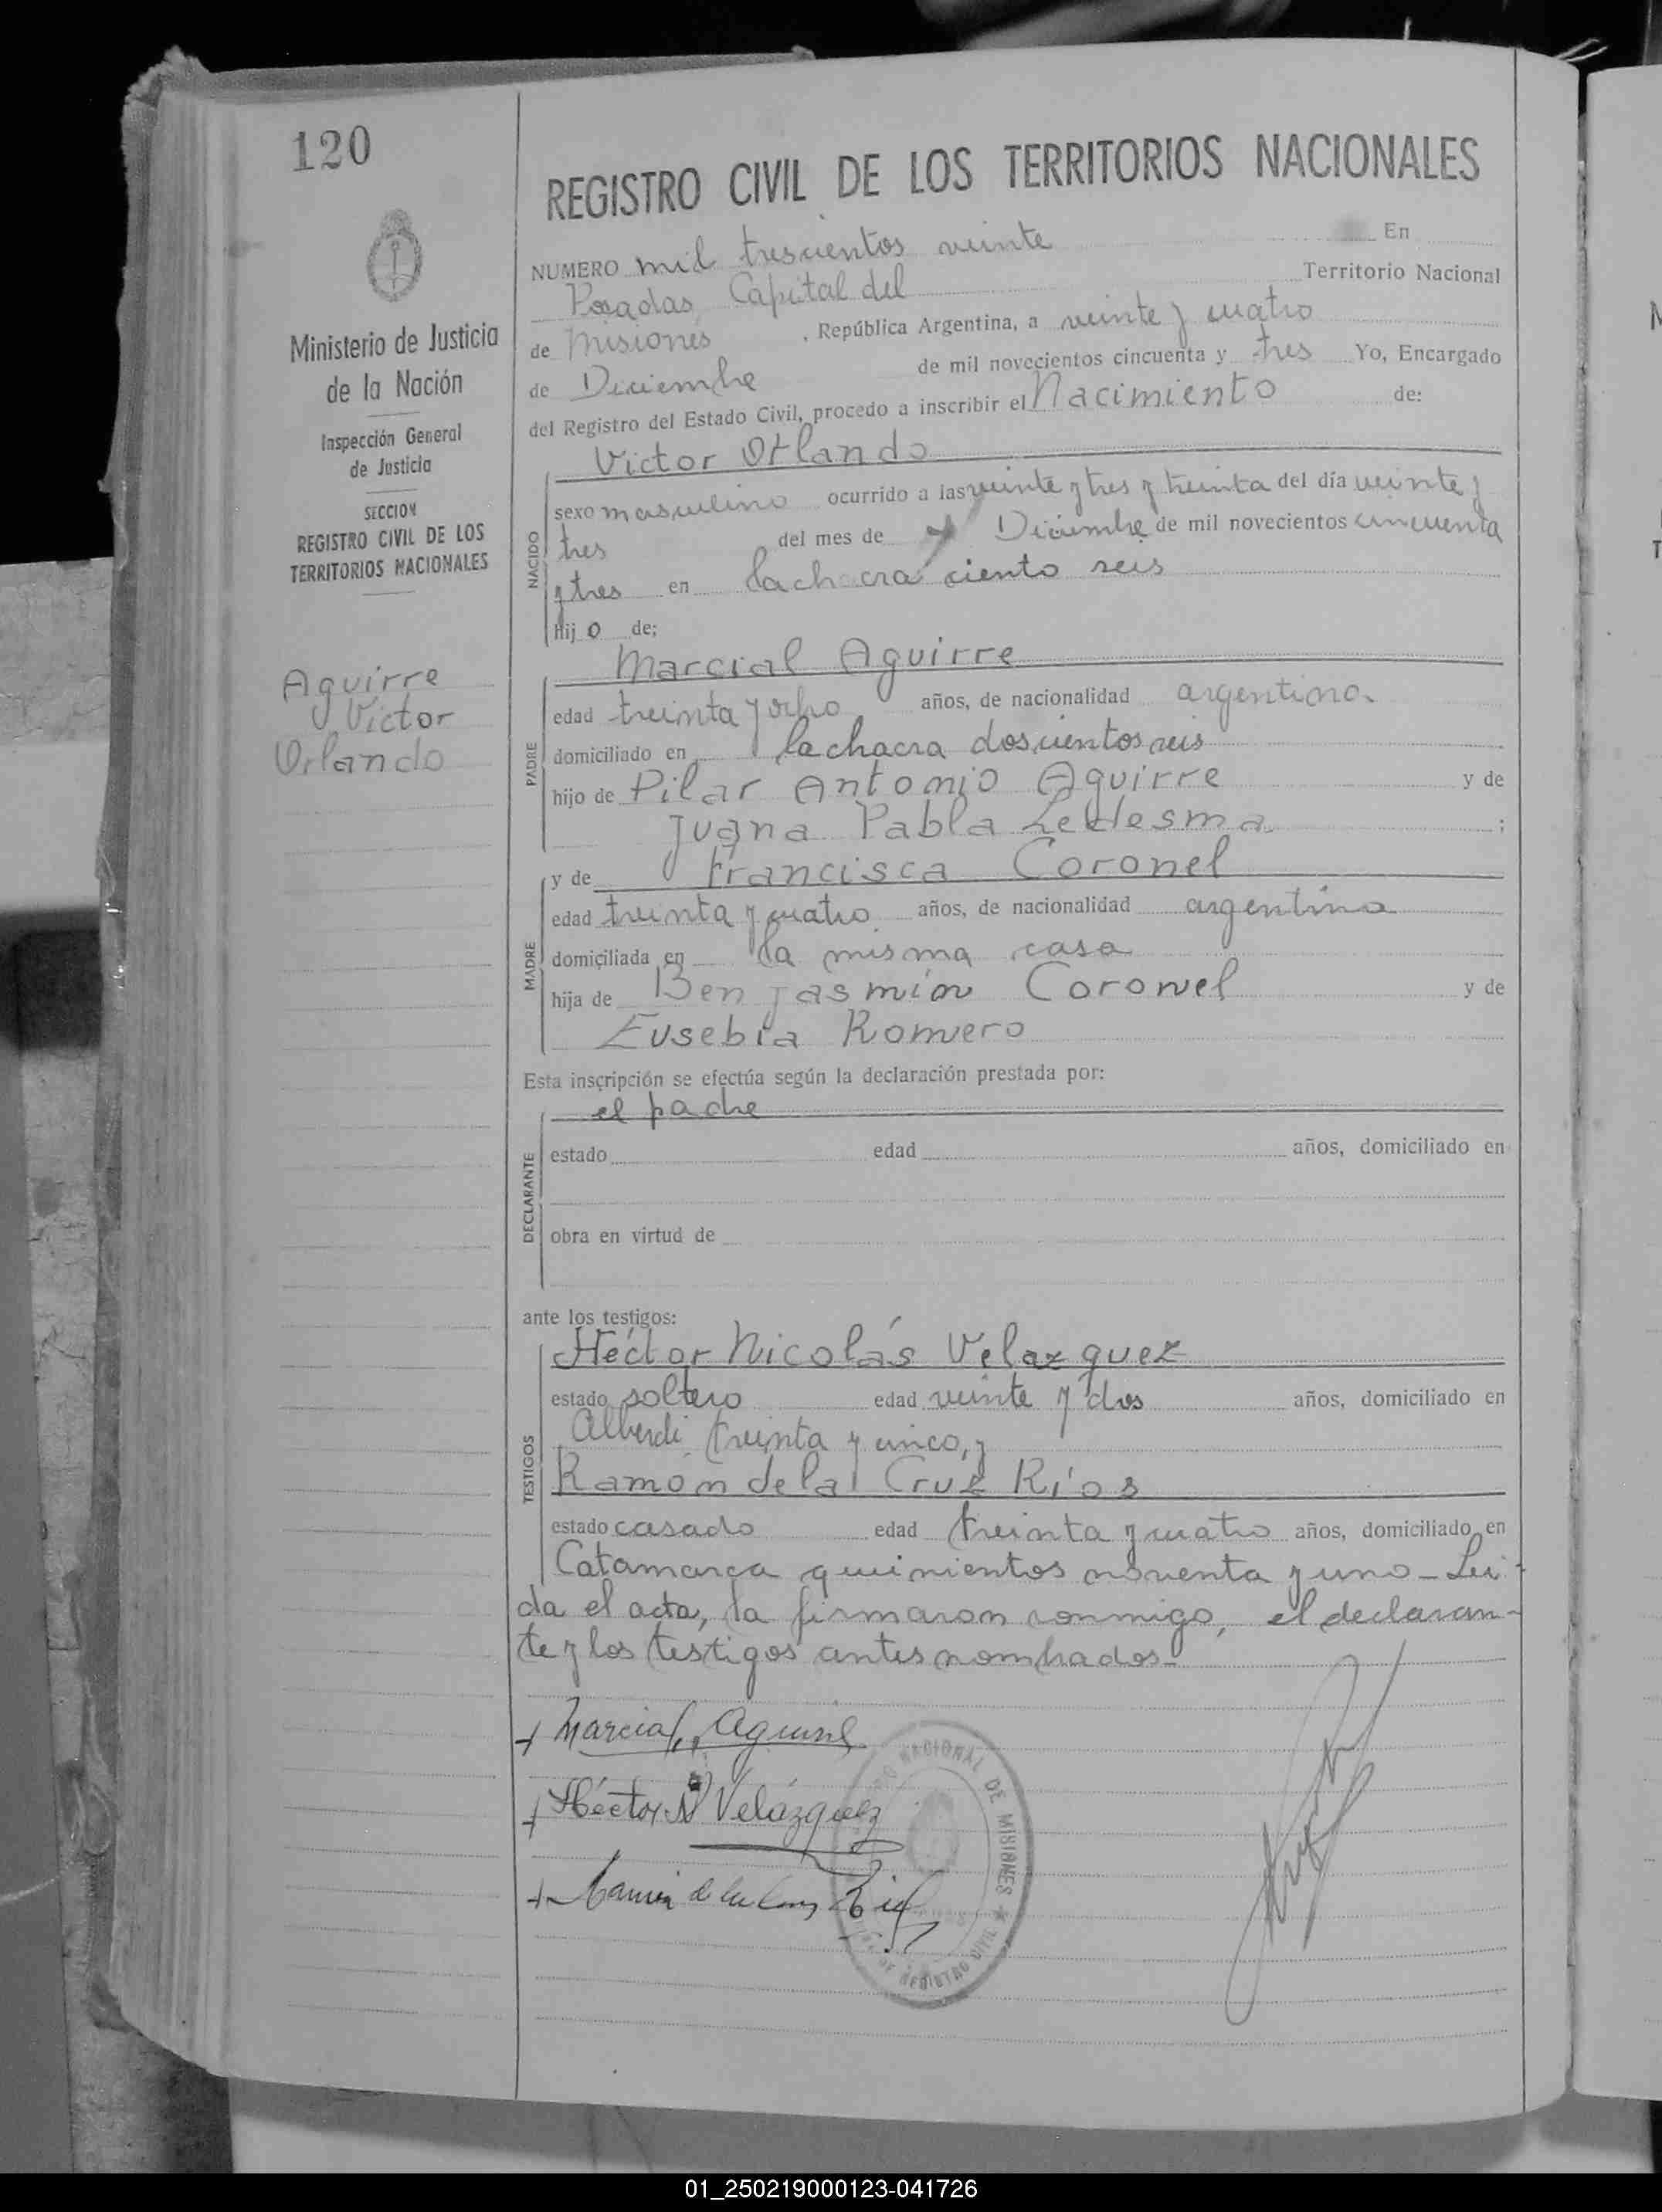 120
Ministerio de Justicia
de la Nación
Inspección General
de Justicia
SECCION
REGISTRO CIVIL DE LOS
TERRITORIOS NACIONALES
Aguirre
Victor
Orlando
REGISTRO CIVIL DE LOS TERRITORIOS NACIONALES
NUMERO mil trescientos veinte En
Posadas Capital del Territorio Nacional
de Misiones , República Argentina, a veinte y cuatro
de Diciembre de mil novecientos cincuenta y tres Yo, Encargado
del Registro del Estado Civil, procedo a inscribir el Nacimiento de:
Victor Orlando
NACIDO
sexo masculino ocurrido a las veinte y tres y treinta del día veinte y
tres del mes de Diciembre de mil novecientos cincuenta
y tres en la chacra ciento seis
Hij o de;
Marcial Aguirre
PADRE
edad treinta y ocho años, de nacionalidad argentina
domiciliado en la chacra doscientos seis
hijo de Pilar Antonio Aguirre y de
Juana Pabla Ledesma ;
y de Francisca Coronel
MADRE
edad treinta y cuatro años, de nacionalidad argentina
domiciliada en la misma casa
hija de Benjasmín Coronel y de
Eusebia Romero
Esta inscripción se efectúa según la declaración prestada por:
el padre
DECLARANTE
estado edad años, domiciliado en
obra en virtud de
ante los testigos:
Héctor Nicolás Velazquez
TESTIGOS
estado soltero edad veinte y dos años, domiciliado en
Alberdi treinta y cinco, y
Ramón de la Cruz Ríos
estado casado edad treinta y cuatro años, domiciliado en
Catamarca quinientos noventa y uno - Lei-
da el acta, la firmaron conmigo, el declaran-
te y los testigos antes nombrados-
Marcial Aguirre
Héctor N Velázquez
Ramón de la Cruz Ríos
NACIONAL DE MISIONES
REGISTRO CIVIL
01_250219000123-041726